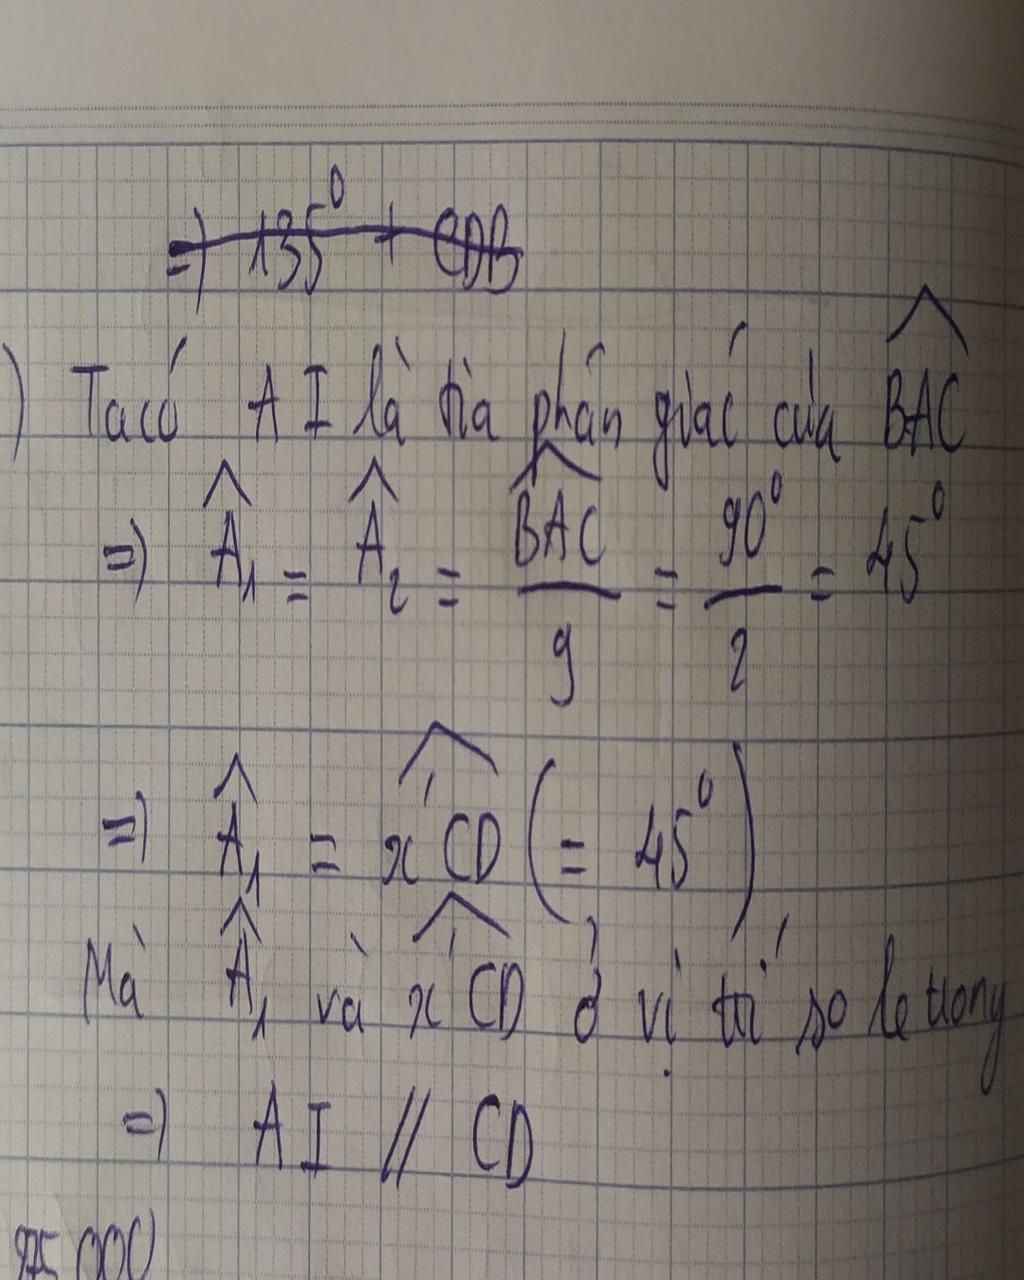 =) 135⁰ + CDB
) Ta có AI là tia phân giác của BAC
=) Â₁ = Â₂ = BAC/2 = 90⁰/2 = 45⁰
=) Â₁ = x'CD (= 45⁰)
Mà Â₁ và x'CD ở vị trí so le trong
=) AI // CD